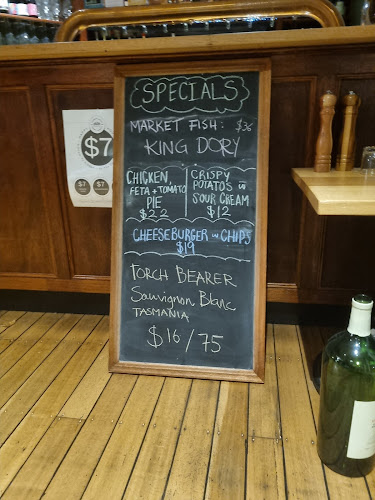 SPECIALS
MARKET FISH: $36
KING DORY
CHICKEN,
FETA + TOMATO
PIE
$22
CRISPY
POTATOS w
SOUR CREAM
$12
CHEESEBURGER w CHIPS
$19
PORCH BEARER
Sauvignon Blanc
TASMANIA
$16/75
$7
$7
$7